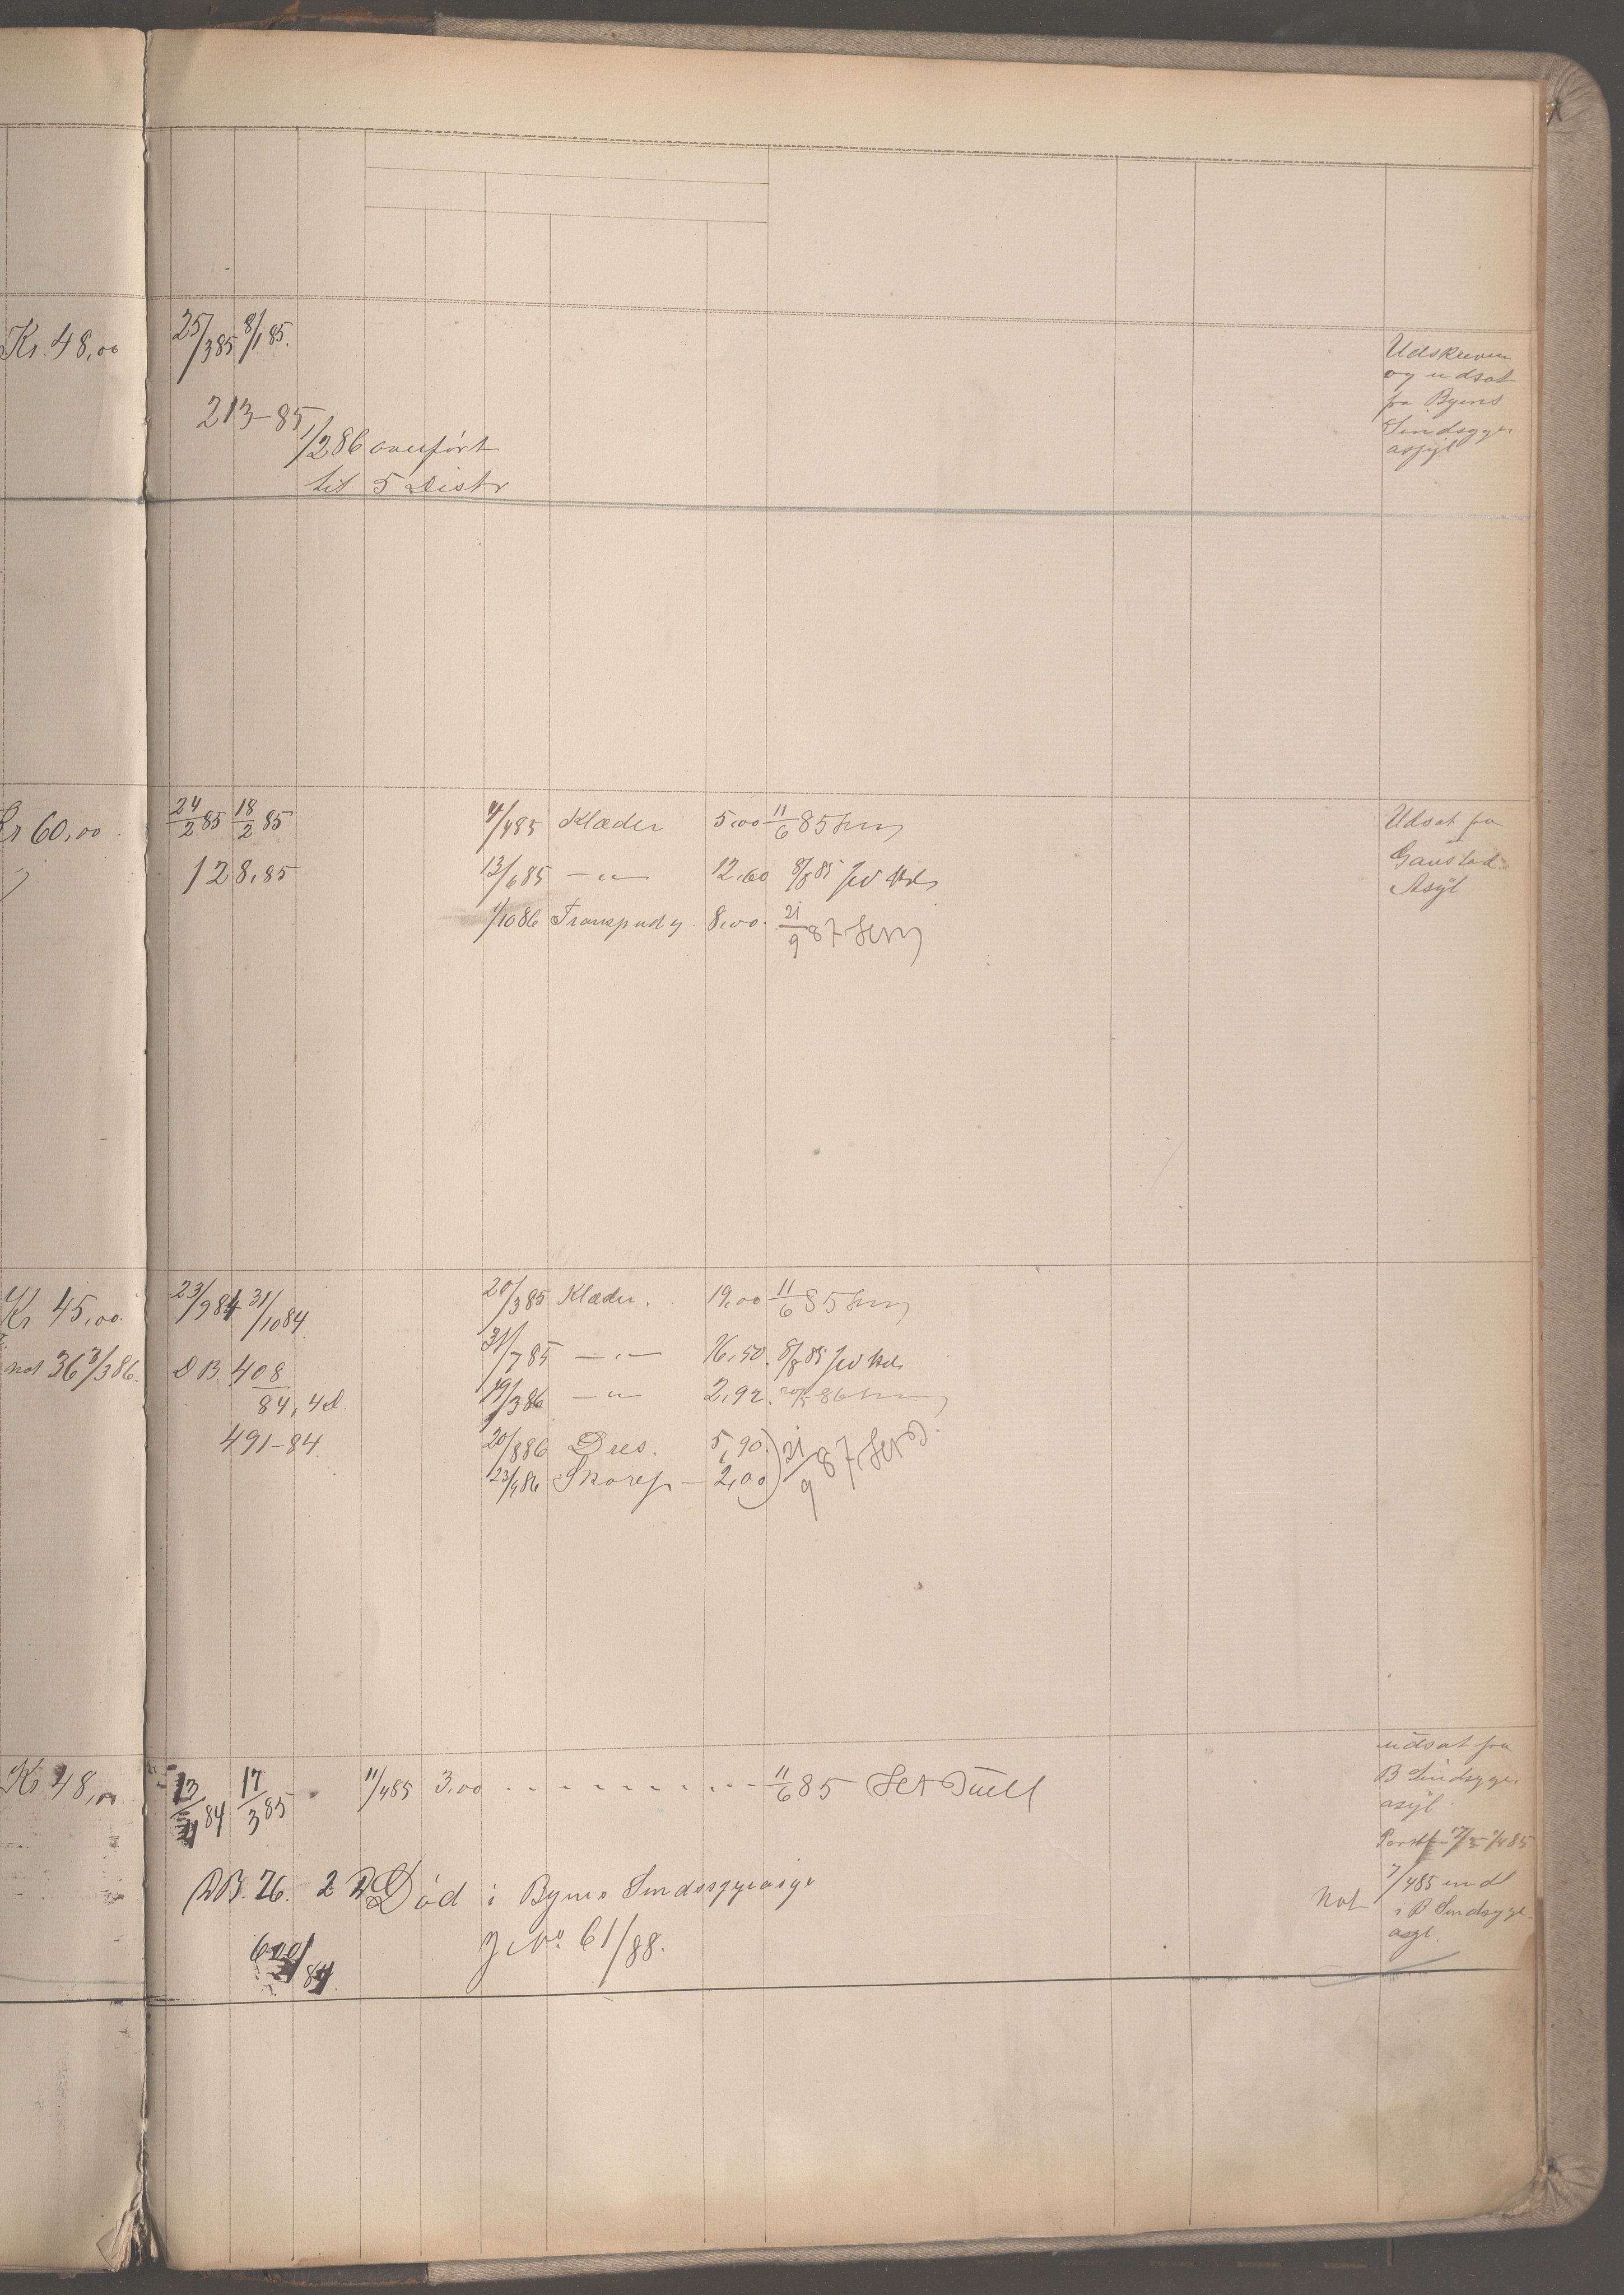 Kr. 48,00 25/3 85 8/1 85.
213-85
1/2 86 overført
til 5 Distr
Udskreven
og udsat
fra Byens
Sindsyge
asyl
Kr 60,00 24/2 85 18/2 85
128,85
4/4 85 Klæder 5,00 11/6 85
13/6 85 — " — 12,60 8/8 85
1/10 86 8,00. 21/9 87
Udsat fra
Gaustad
Asyl
Kr 45,00. 23/9 84 31/10 84
not 36 3/3 86. DB. 408
84, 4d.
491-84
20/3 85 Klæder. 19,00 11/6 85
31/7 85 — " — 16,50. 8/8 85
19/3 86 — " 2,92. 86
20/8 86 Dres. 5,90.) 21/9 87
23/9 86 2,00
Kr 48,00 13 84 17/3 85 11/4 85 3,00 - - - - - - - - - - 11/6 85
DB. 76. 2 Død i Byens Sindssygeasyl
J No. 61/88.
84
udsat fra
B Sindsyge
asyl
7/4 85 indl
Not i B Sindsyge
asyl.